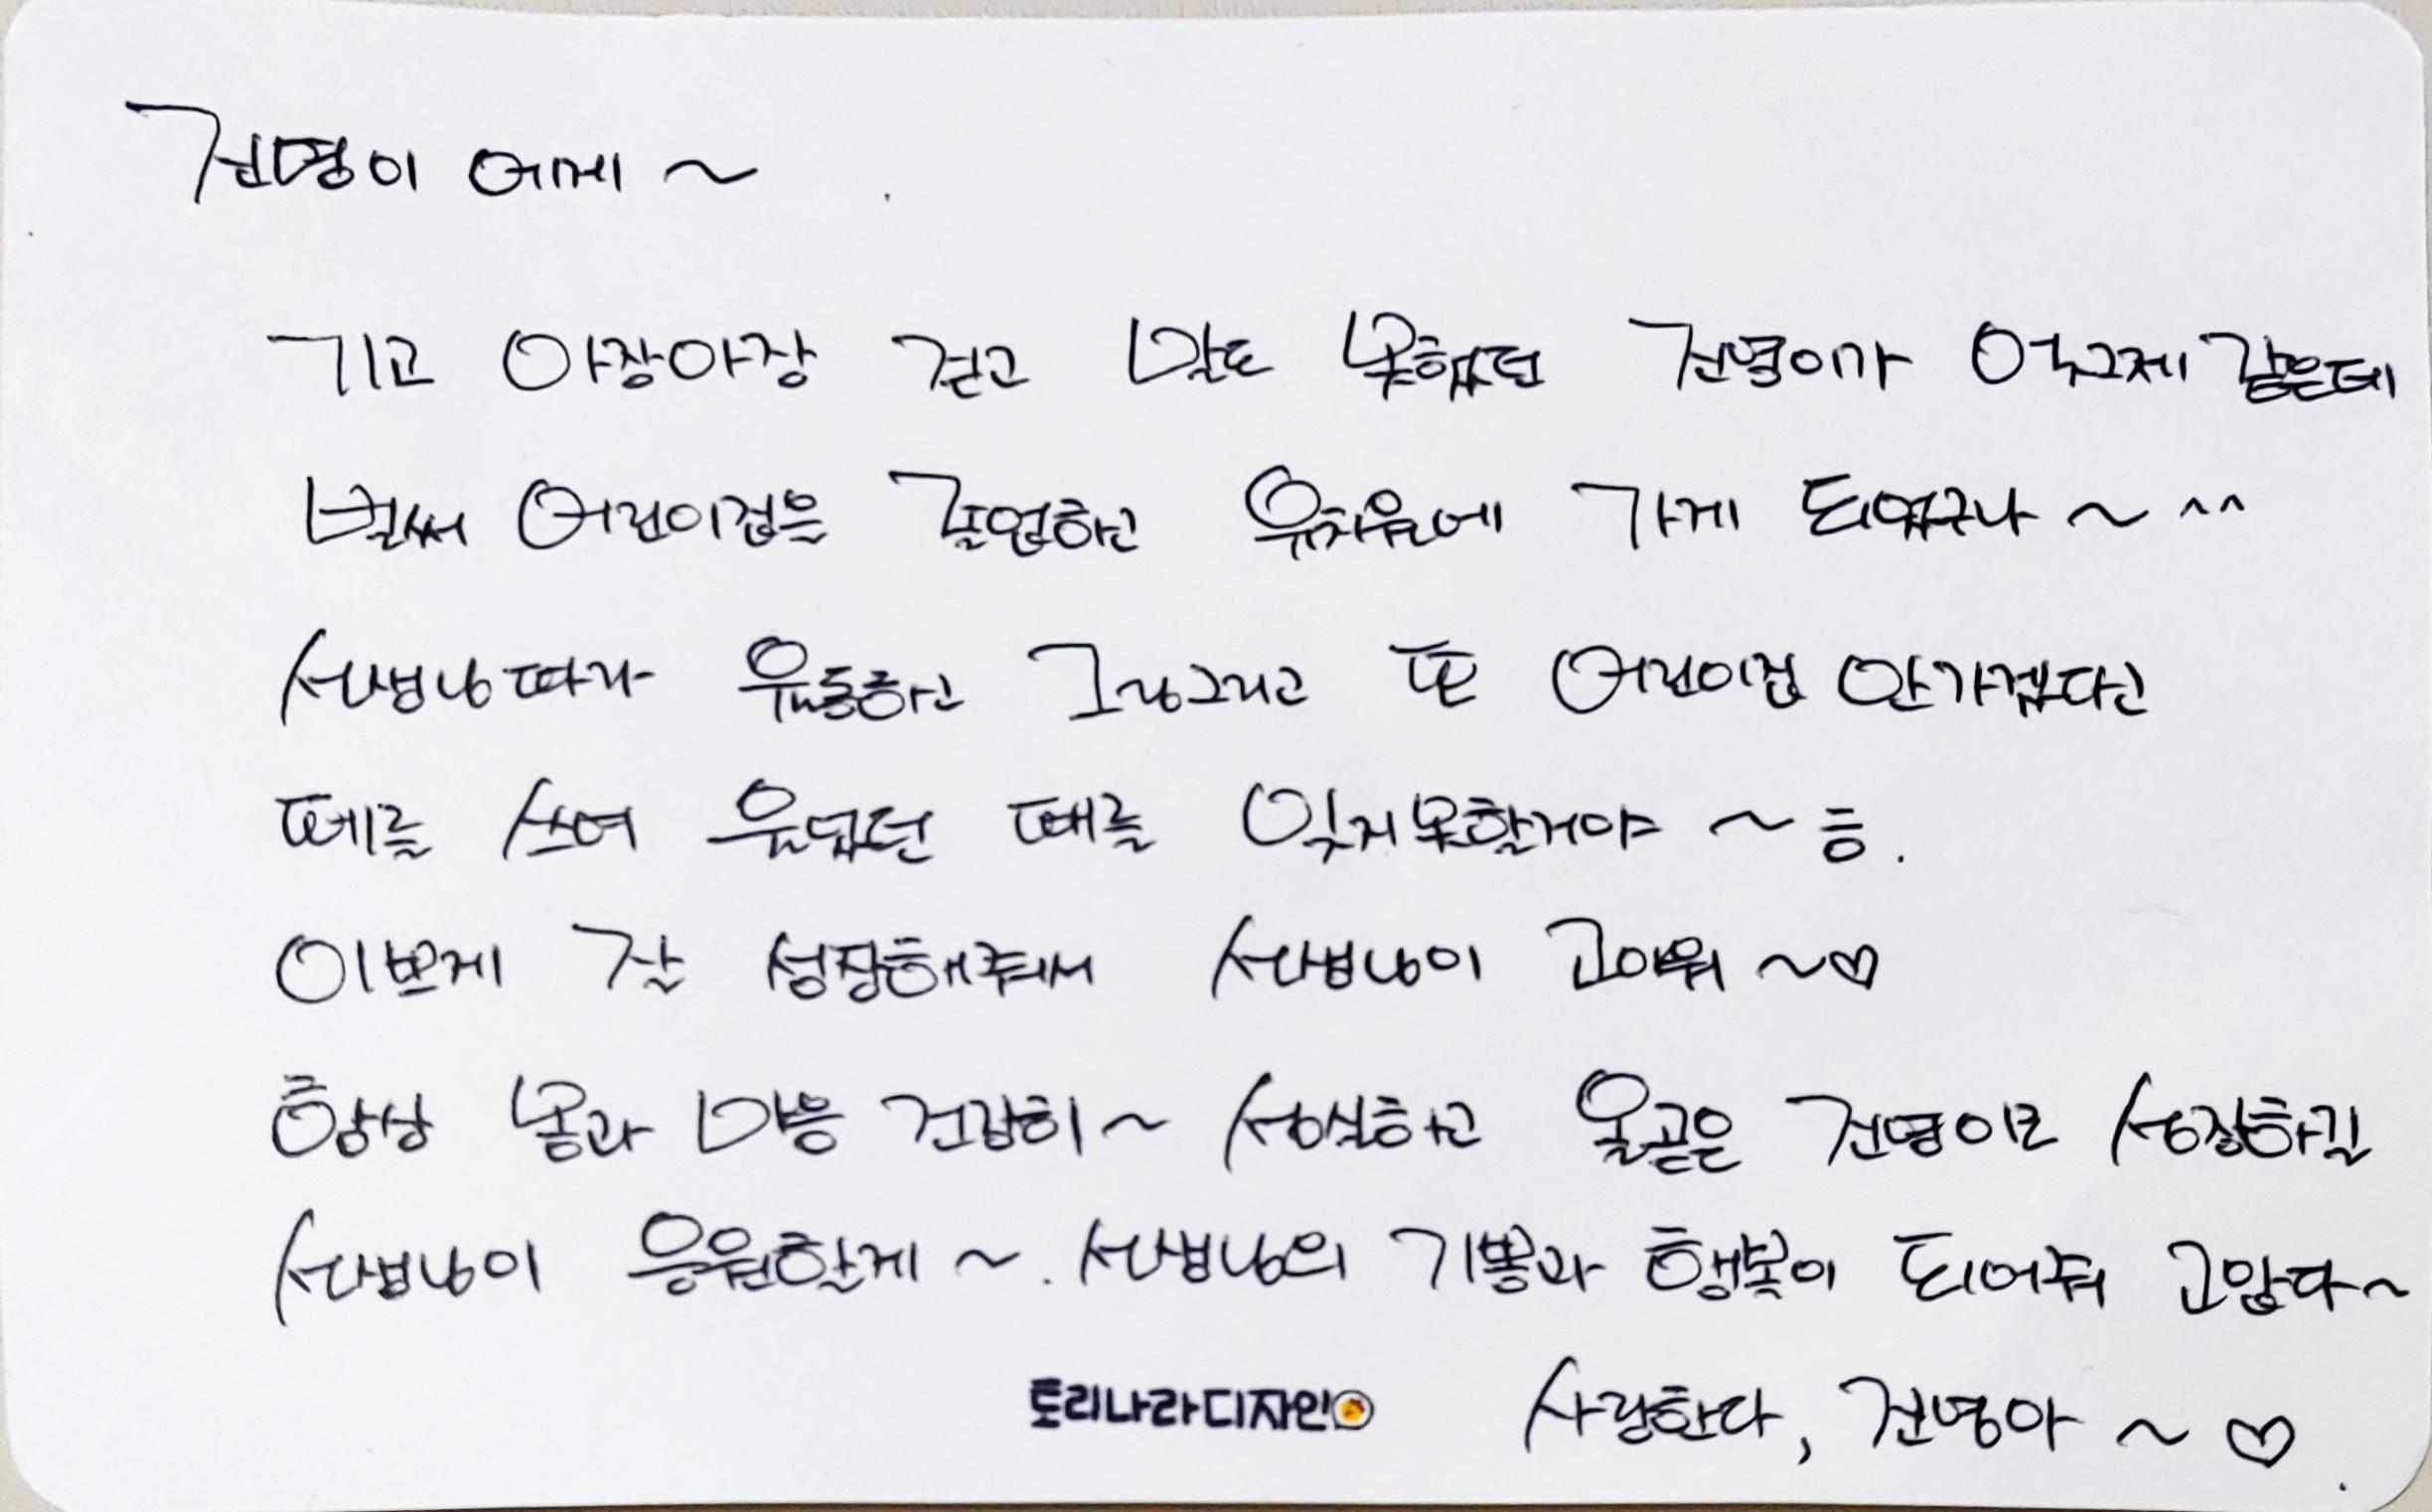 건명이 에게 ~
기고 아장아장 걷고 말도 못했던 건명이가 엊그제 같은데
벌써 어린이집을 졸업하고 유치원에 가게 되었구나 ~ ^^
선생님따라 율동하고 그림그리고 또 어린이집 안가겠다고
떼를 쓰며 울었던 때를 잊지못할거야 ~ 흐.
이쁘게 잘 성장해줘서 선생님이 고마워 ~♡
항상 몸과 마음 건강히 ~ 성실하고 올곧은 건명이로 성장하길
선생님이 응원할게 ~. 선생님의 기쁨과 행복이 되어줘 고맙다~
토리나라디자인
사랑한다, 건명아 ~ ♡.